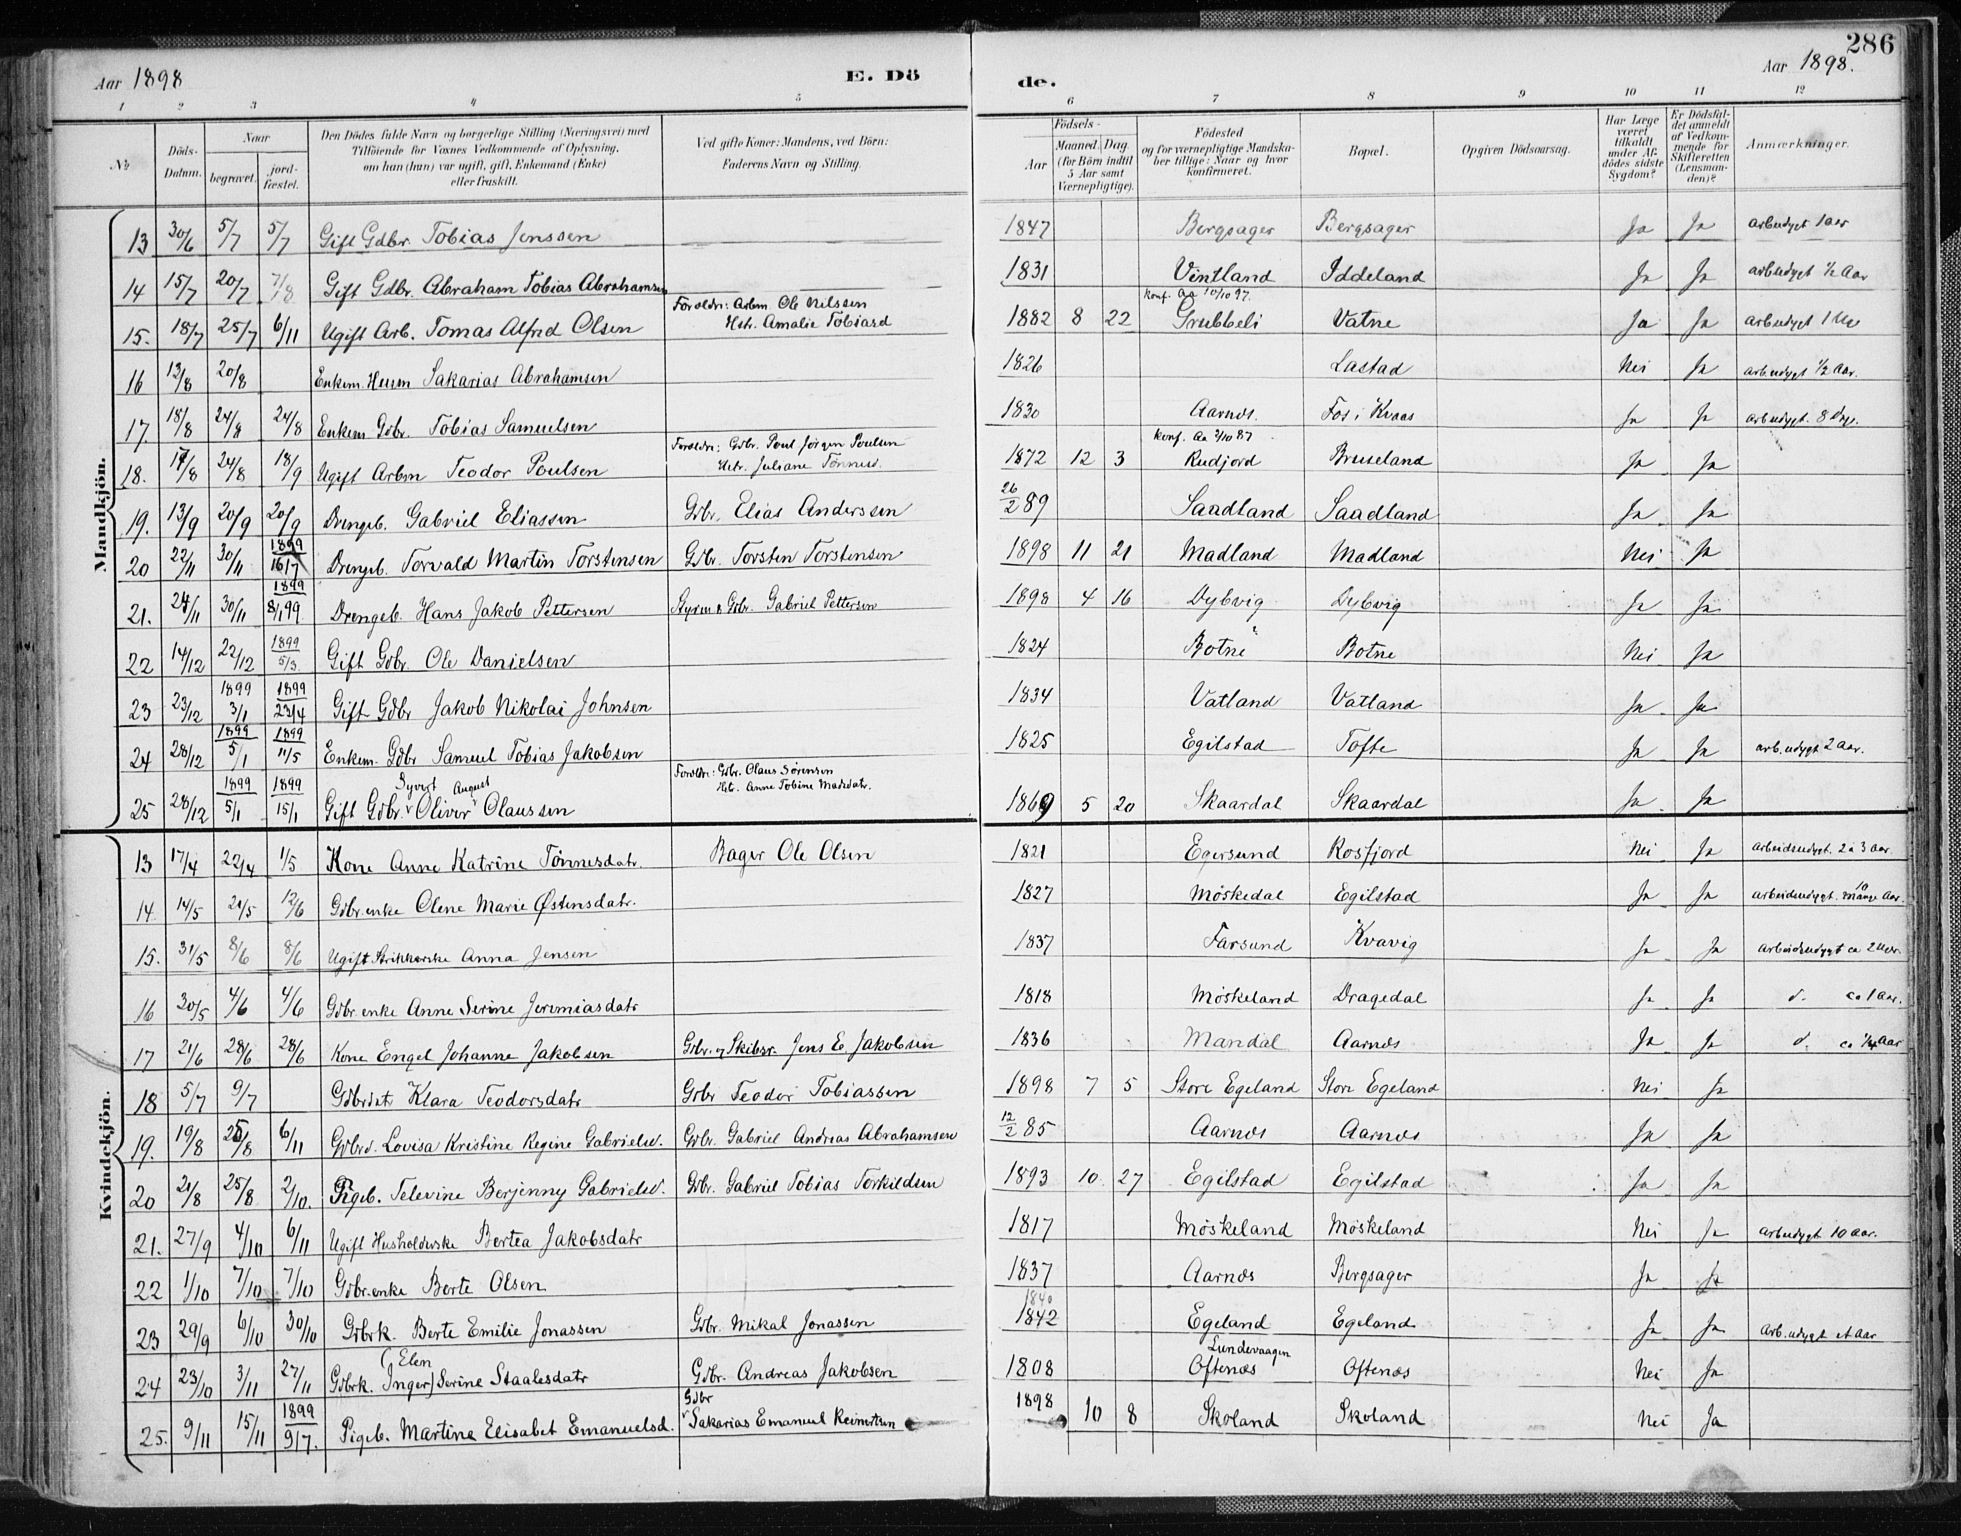 286
Aar 1898
E. Dö
de.
Aar 1898.
1 2 3 4 5 6 7 8 9 10 11 12
No.
Döds-Datum.
Naar
begravet.
jord-fæstet.
Den Dödes fulde Navn og borgerlige Stilling (Næringsvei) med
Tilföiende for Voxnes Vedkommende af Oplysning,
om han (hun) var ugift, gift, Enkemand (Enke)
eller fraskilt.
Ved gifte Koner: Mandens, ved Börn:
Faderens Navn og Stilling.
Födsels-
Aar
Maaned. Dag.
(for Börn indtil
5 Aar samt
Værnepligtige).
Födested
og for værnepligtige Mandska-
ber tillige: Naar og hvor
konfirmeret.
Bopæl.
Opgiven Dödsaarsag.
Har Læge
været
tilkaldt
under Af-
dödes sidste
Sygdom?
Er Dödsfal-
det anmeldt
af Vedkom-
mende for
Skifteretten
(Lensman-
den)?
Anmærkninger.
Mandkjön.
13 30/6 5/7 5/7 Gift Gdbr. Tobias Jenssen 1847 Bergsager Bergsager Ja Ja arbudygt 1 aar
14 15/7 20/7 7/8 Gift Gdbr. Abraham Tobias Abrahamsen 1831 Vintland Iddeland Ja Ja arbudygt 1/2 Aar
Foræld.: Arbm Ole Nilssen
konf. Aa 10/10 97.
15. 18/7 25/7 6/11 Ugift Arb. Tomas Alfred Olsen Hstr. Amalie Tobiasd 1882 8 22 Grubbeli Vatne Ja Ja arbudygt 1 Uge
16 13/8 20/8 Enkem. Husm Sakarias Abrahamsen 1826 Lastad Nei Ja arb.udygt 1/2 Aar.
17 18/8 24/8 24/8 Enkem Gdbr. Tobias Samuelsen 1830 Aarnes. Fos i Kvaas Ja Ja arbudygt. 8 Dge.
Foræld.: Gdbr. Poul Jørgen Poulsen
konf. Aa 2/10 87
18. 17/8 24/8 18/9 Ugift Arbm Teodor Poulsen Hstr. Juliane Tønnesd. 1872 12 3 Rudjord Bruseland Ja Ja
19. 13/9 20/9 20/9 Drengeb. Gabriel Eliassen Gdbr. Elias Anderssen 26/2 89 Saadland Saadland Ja Ja
20 22/11 30/11 1899 16/7 Drengeb. Torvald Martin Torstensen Gdbr. Torsten Torstensen 1898 11 21 Madland Madland Nei Ja
21. 24/11 30/11 1899 8/1 99 Drengeb. Hans Jakob Pettersen Styrm & Gdbr. Gabriel Pettersen 1898 4 16 Dybvig Dybvig Ja Ja
22 14/12 22/12 1899 5/3 Gift Gdbr. Ole Danielsen 1824 Botne Botne Nei Ja
23 23/12 1899 3/1 1899 23/4 Gift Gdbr Jakob Nikolai Johnsen 1834 Vatland Vatland Ja Ja
24 28/12 1899 5/1 1899 11/5 Enkem. Gdbr Samuel Tobias Jakobsen 1825 Egilstad Tofte Ja Ja arb. udygt 2 Aar.
Syvert August Foræld.: Gdbr. Olaus Sørensen
25 28/12 1899 5/1 1899 15/1 Gift Gdbr. Oliver Olaussen Hstr. Anne Tobine Madsdatr. 1869 5 20 Skaardal Skaardal Ja Ja
Kvindekjön.
13 17/4 22/4 1/5 Kone Anne Katrine Tönnesdatr. Bager Ole Olsen 1821 Egersund Rosfjord Nei Ja arbeidsudygt. 2 a 3 Aar.
14. 14/5 21/5 12/6 Gdbr.enke Olene Marie Østensdatr. 1827 Möskedal Egilstad Ja Ja arbeidsudygt. mange 10 Aar.
15. 31/5 8/6 8/6 Ugift Strikkerske Anna Jensen 1837 Farsund Kvavig Ja Ja arbeidsudygt ca 2 Uker.
16 30/5 4/6 4/6 Gdbr.enke Anne Serine Jeremiasdatr 1818 Möskeland Dragedal Ja Ja d. ca 1 Aar.
17 21/6 28/6 28/6 Kone Engel Johanne Jakobsen Gdbr. og Skibsr. Jens E. Jakobsen 1836 Mandal Aarnes Ja Ja d. ca 1/4 Aar
18 5/7 9/7 Gdbrdatr Klara Teodorsdatr Gdbr Teodor Tobiassen 1898 7 5 Store Egeland Store Egeland Nei Ja
19. 19/8 25/8 6/11 Gdbrd. Lovisa Kristine Regine Gabrielsd. Gdbr. Gabriel Andreas Abrahamsen 12/2 85 Aarnes Aarnes Ja Ja
20 21/8 25/8 2/10. Pigeb. Televine Berjenny Gabrielsd. Gdbr. Gabriel Tobias Torkildsen 1893 10 27 Egilstad Egilstad Ja Ja
21. 27/9 4/10 6/11 Ugift Husholderske Bertea Jakobsdatr 1817 Möskeland Möskeland Nei Ja arbudygt 10 Aar.
22 1/10 7/10 7/10 Gdbr.enke Berte Olsen 1837 Aarnes Bergsager Ja Ja
1840
23 29/9 6/10 30/10 Gdbrk. Berte Emilie Jonassen Gdbr. Mikal Jonassen 1842 Egeland Egeland Ja Ja arb.udygt et Aar
(Elen Lundevaagen
24 23/10 3/11 27/11 Gdbrk. Inger) Serine Staalesdatr Gdbr. Andreas Jakobsen 1808 Oftenæs Oftenæs Nei Ja
Gdbr
25. 9/11 15/11 1899 9/7. Pigeb. Martine Elisabet Emanuelsd. Sakarias Emanuel Reinertsen 1898 10 8 Skoland Skoland Nei Ja